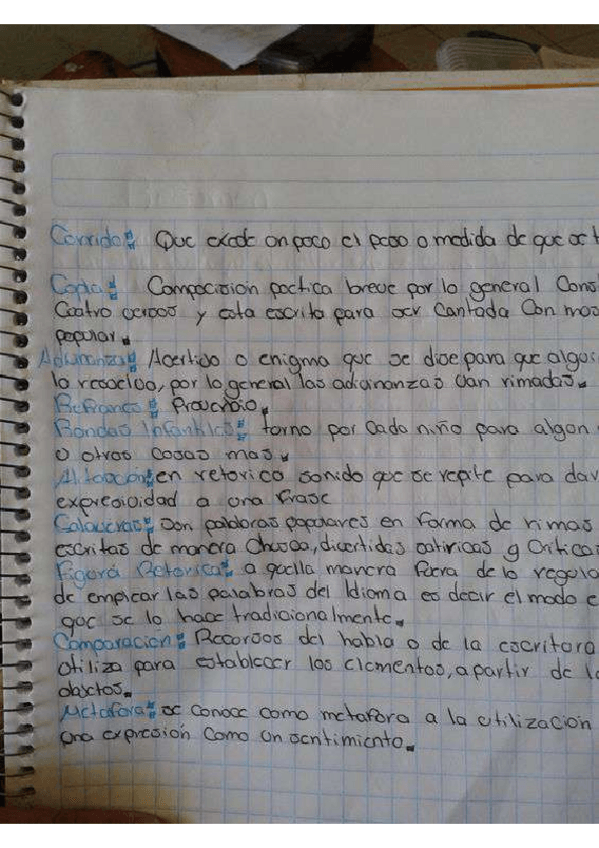 Corrido: Que exede un poco el peso o medida de que se t
Copla: Compocision poetica breve por lo general Cons
Cuatro versos y esta escrita para ser Cantada Con mos
popular.
Adivinanza: Acertido o enigma que se dise para que algu
lo resuelva, por lo general las adivinanzas van rimadas.
Refranes: Proverbio.
Rondas Infantiles: torno por cada niño para algun
o otras cosas mas.
en retorica sonido que se repite para dar
expresividad a una frase
Calaveras: Son palabras populares en forma de rimas
escritas de manera Chusca, divertidas satiricas y Criticas
Figura Retorica: a quella manera fuera de lo regula
de emplear las palabras del Idioma es decir el modo e
que se lo hace tradicionalmente.
Comparacion: Recursos del habla o de la escritura
utiliza para establecer los elementos, a partir de l
objetos.
Metafora: se conoce como metafora a la utilizacion
una expresión como un sentimiento.